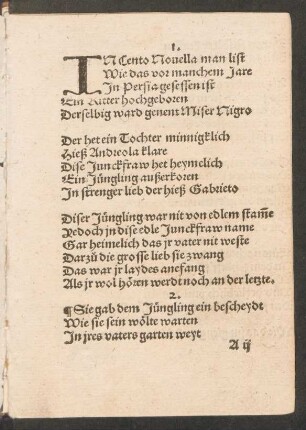 1.
IN Cento Nouella man list
Wie das vor manchem Jare
In Persia gesessen ist
Ein Ritter hochgeboren
Derselbig ward genent Miser Nigro
Der het ein Tochter minnigklich
Hieß Andreola klare
Dise Junckfraw het heymelich
Ein Jüngling außerkoren
In strenger lieb der hieß Gabrieto
Diser Jüngling war nit von edlem stam̃e
Yedoch jn dise edle Junckfraw name
Gar heimelich das jr vater nit weste
Darzů die grosse lieb sie zwang
Das war jr laydes anefang
Als jr wol hören werdt noch an der letzte.
2.
¶ Sie gab dem Jüngling ein bescheydt
Wie sie sein wölte warten
In jres vaters garten weyt
A ij